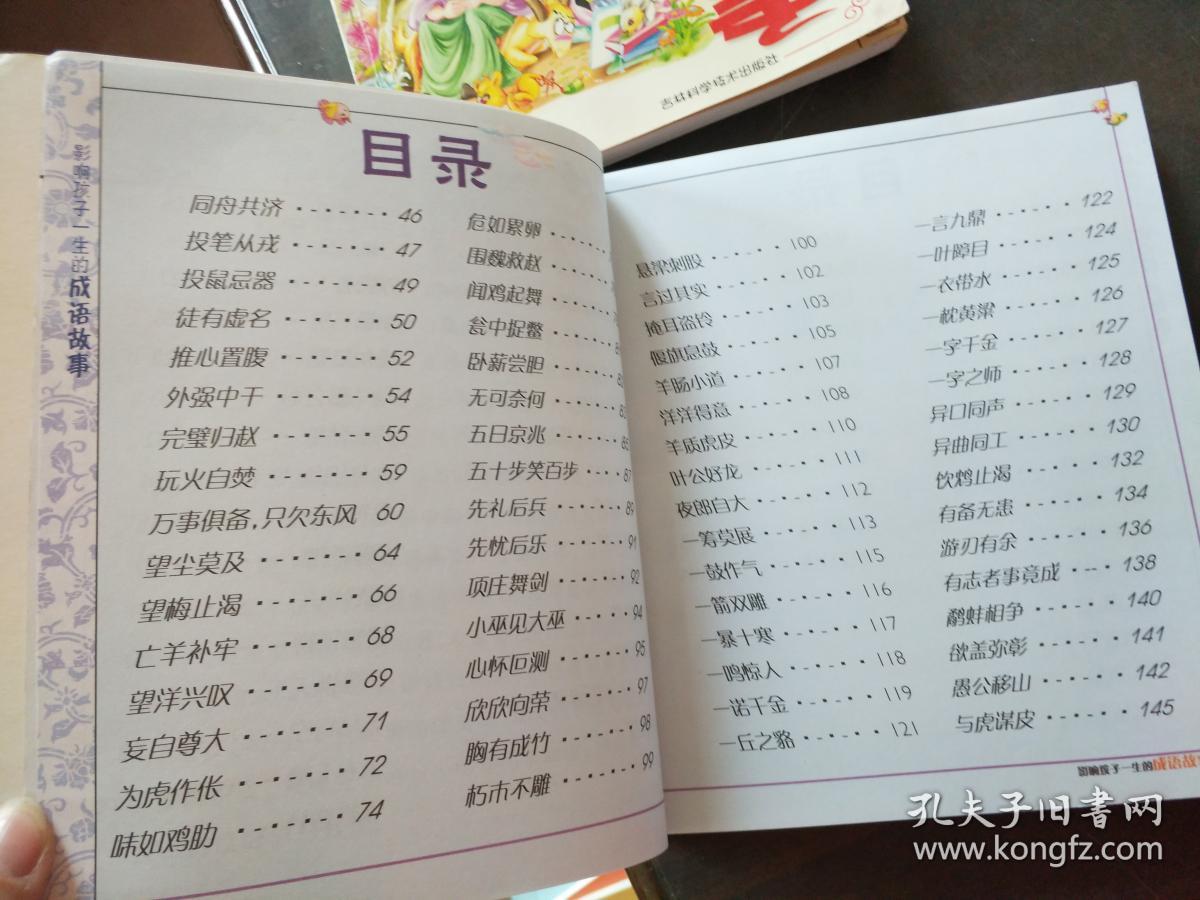 吉林科学技术出版社
影响孩子一生的成语故事
目录
同舟共济 ······· 46
投笔从戎 ······· 47
投鼠忌器 ······· 49
徒有虚名 ······· 50
推心置腹 ······· 52
外强中干 ······· 54
完璧归赵 ······· 55
玩火自焚 ······· 59
万事俱备,只欠东风 60
望尘莫及 ······· 64
望梅止渴 ······· 66
亡羊补牢 ······· 68
望洋兴叹 ······· 69
妄自尊大 ······· 71
为虎作伥 ······· 72
味如鸡肋 ······· 74
危如累卵 ······
围魏救赵 ······
闻鸡起舞 ······
瓮中捉鳖 ······
卧薪尝胆 ······
无可奈何 ······
五日京兆 ······· 85
五十步笑百步 ···· 87
先礼后兵 ······· 89
先忧后乐 ······· 91
项庄舞剑 ······· 92
小巫见大巫 ····· 94
心怀叵测 ······· 95
欣欣向荣 ······· 97
胸有成竹 ······· 98
朽木不雕 ······· 99
悬梁刺股 ······ 100
言过其实 ······ 102
掩耳盗铃 ······ 103
偃旗息鼓 ······ 105
羊肠小道 ······ 107
洋洋得意 ······ 108
羊质虎皮 ······ 110
叶公好龙 ······ 111
夜郎自大 ······ 112
一筹莫展 ······ 113
一鼓作气 ······ 115
一箭双雕 ······ 116
一暴十寒 ······ 117
一鸣惊人 ······ 118
一诺千金 ······ 119
一丘之貉 ······ 121
一言九鼎 ······ 122
一叶障目 ······ 124
一衣带水 ······ 125
一枕黄粱 ······ 126
一字千金 ······ 127
一字之师 ······ 128
异口同声 ······ 129
异曲同工 ······ 130
饮鸩止渴 ······ 132
有备无患 ······ 134
游刃有余 ······ 136
有志者事竟成 ··· 138
鹬蚌相争 ······ 140
欲盖弥彰 ······ 141
愚公移山 ······ 142
与虎谋皮 ······ 145
影响孩子一生的成语故
孔夫子旧书网
www.kongfz.com